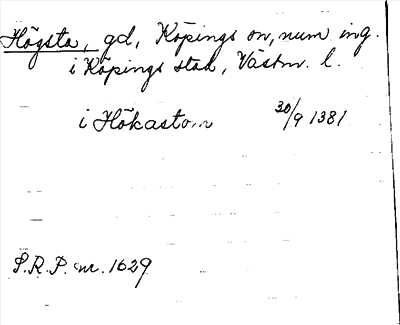 Högsta, gd, Köpings sn, num ing.
i Köpings stad, Västm. l.
i Hökastom 30/9 1381
S.R.P. nr. 1629